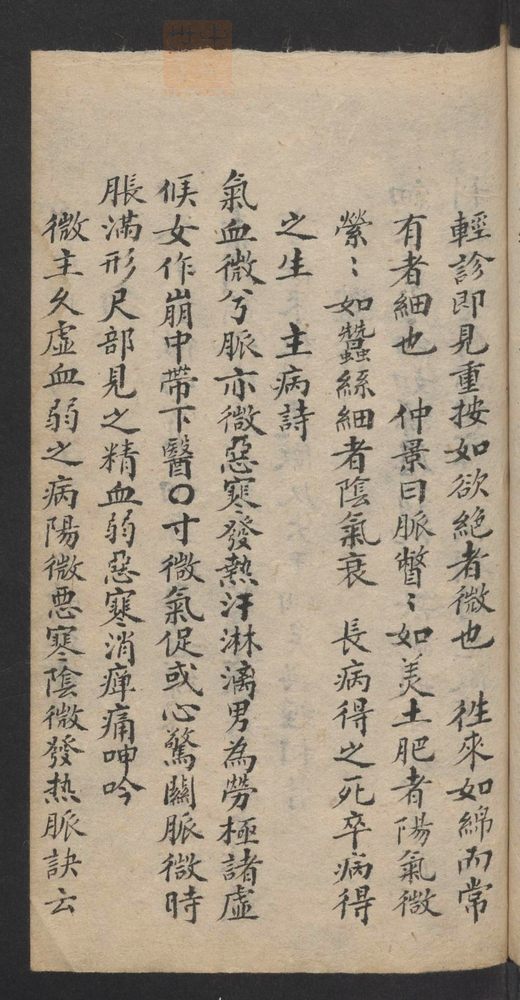 輕診即見重按如欲絶者微也　徃來如綿而常
有者細也　仲景曰脈瞥〻如羙土肥者陽氣微
縈〻如蠶絲細者陰氣衰　長病得之死卒病得
之生　主病詩
氣血微兮脈亦微惡寒發熱汗淋漓男為勞極諸虛
候女作崩中帶下醫〇寸微氣促或心驚關脈微時
脹滿形尺部見之精血弱惡寒消癉痛呻吟
微主久虛血弱之病陽微悪寒陰微發热脈訣云